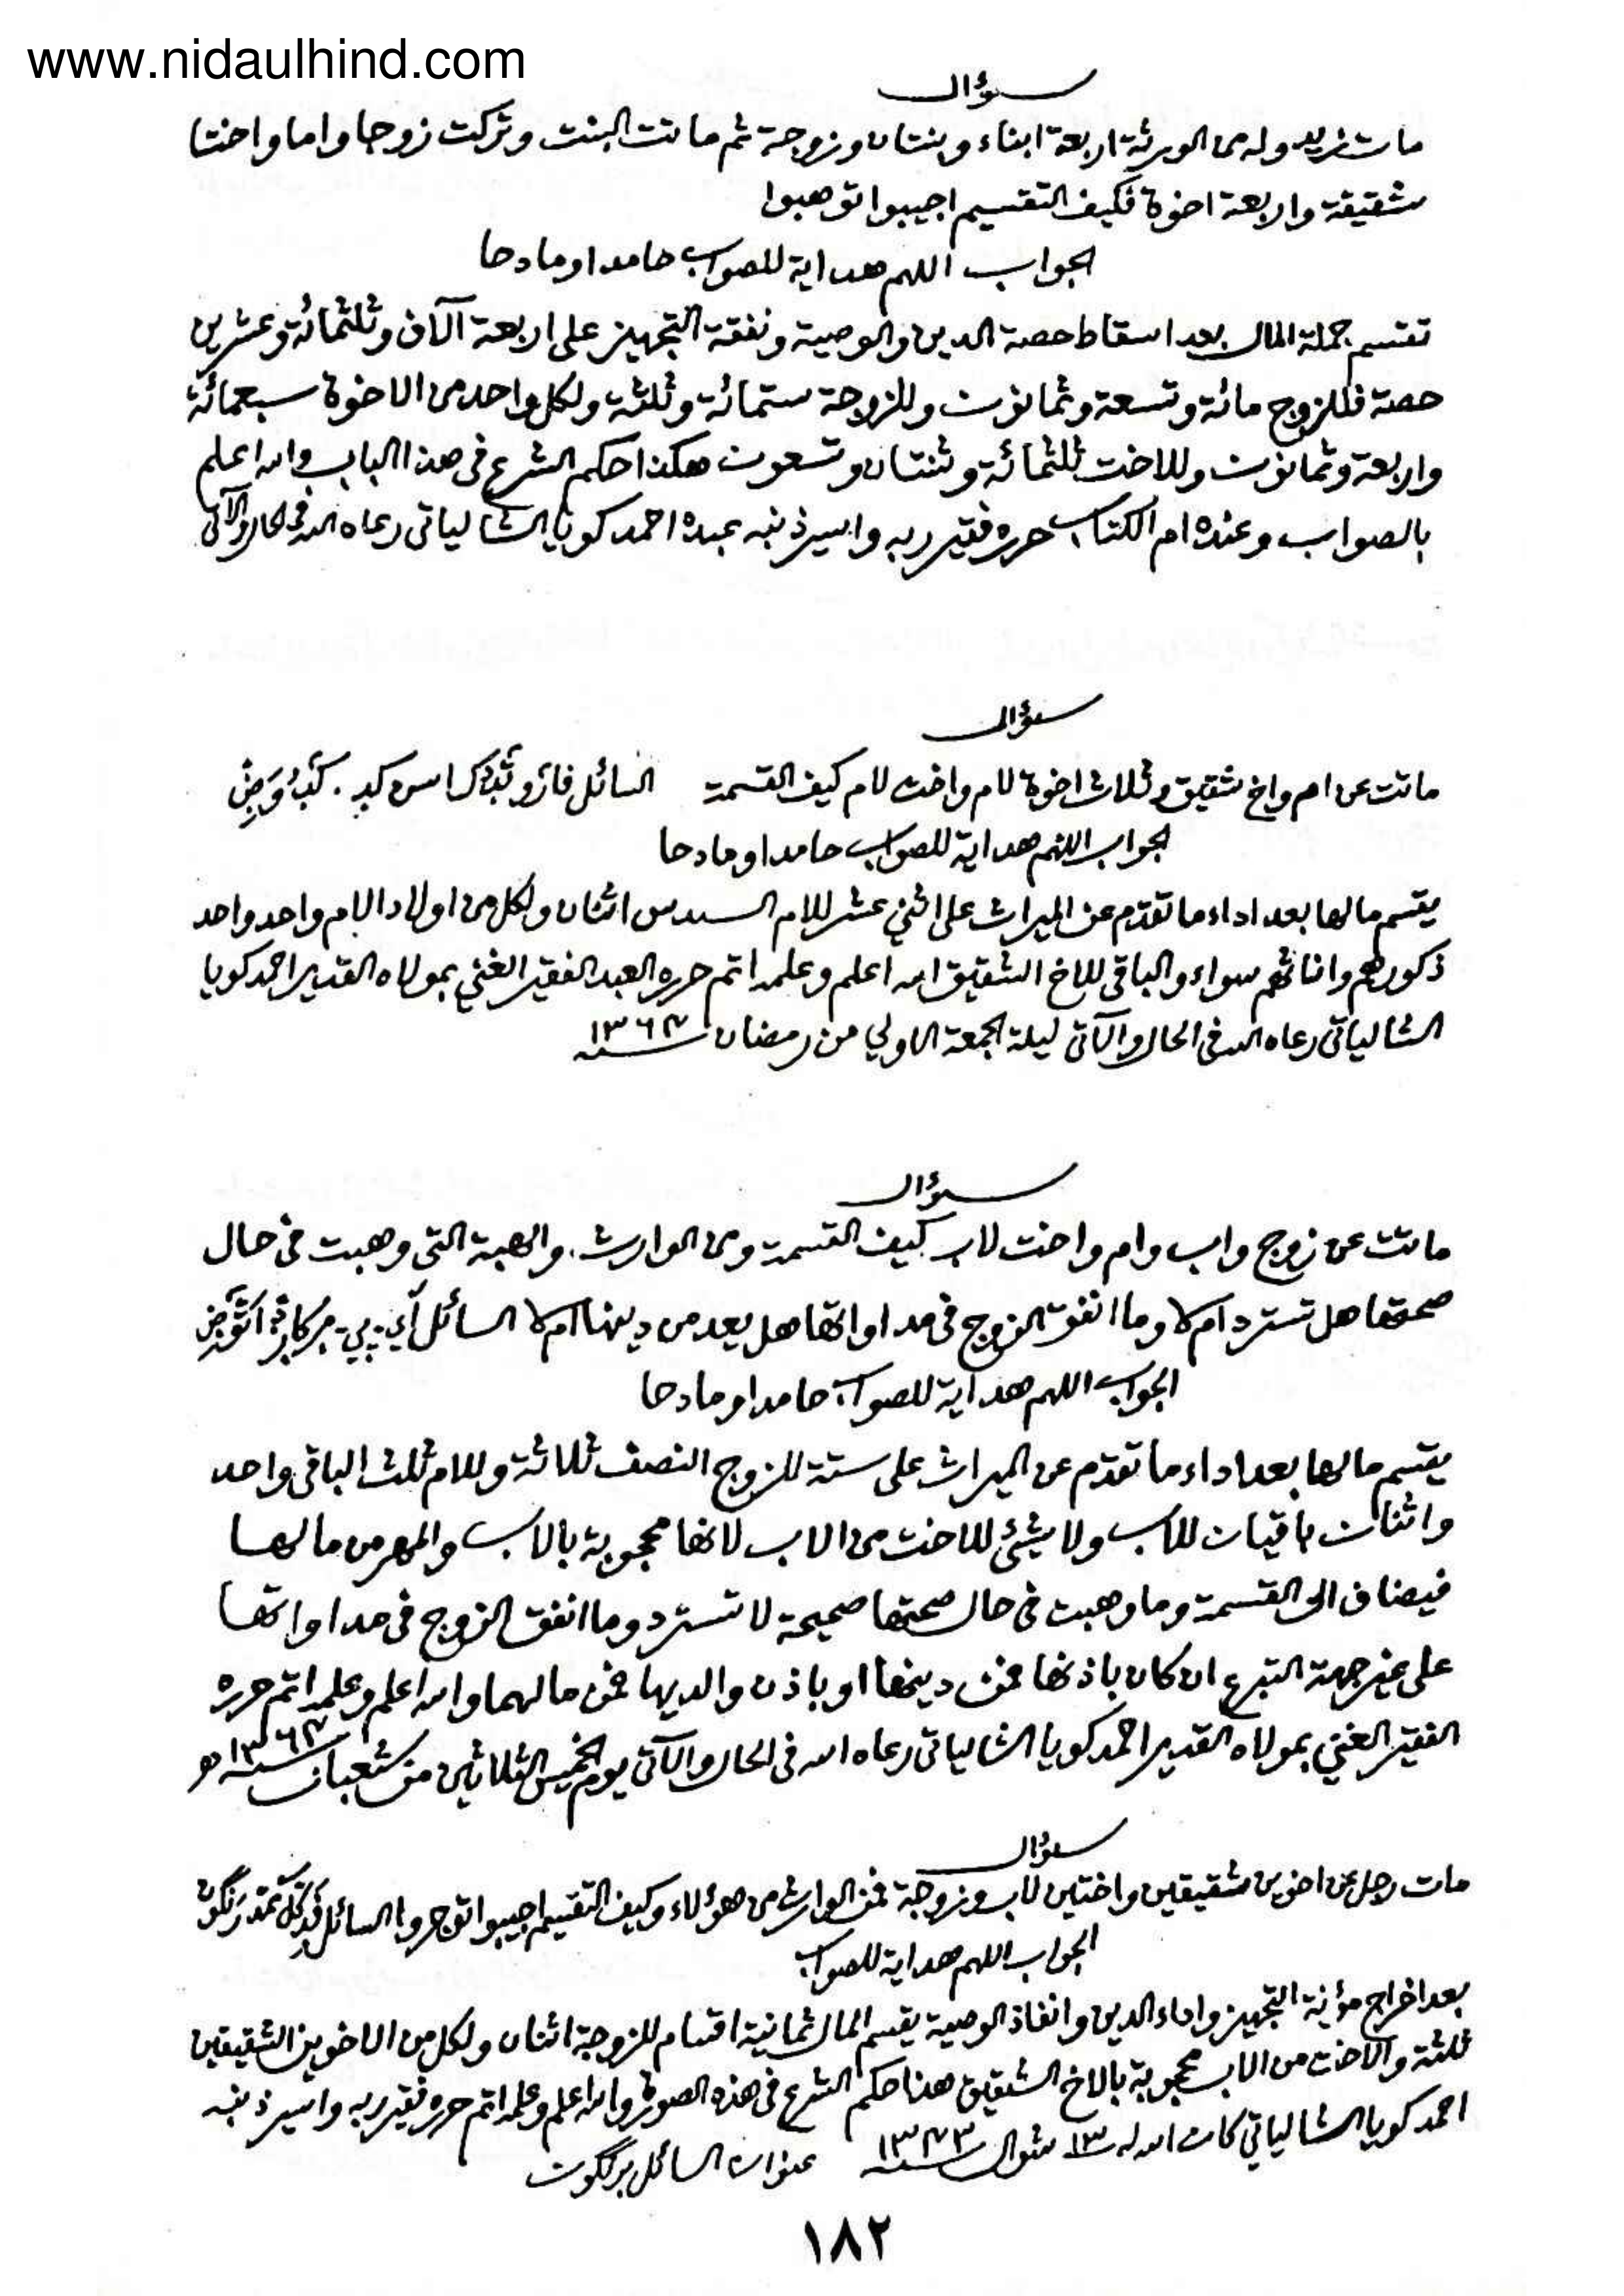 www.nidaulhind.com
سؤال
مات زيد وله من الورثة اربعة ابناء وبنتان وزوجة ثم ماتت البنت وتركت زوجا واما واختا
شقيقة واربعة اخوة فكيف التقسيم اجيبوا توهبوا
الجواب اللهم هداية للصواب حامدا ومادحا
تقسم جملة المال بعد اسقاط حصة الدين والوصية ونفقة التجهيز على اربعة آلاف وثلثمائة وعشرين
حصة فللزوج مائة وتسعة وثمانون وللزوجة ستمائة وثلثة ولكل واحد من الاخوة سبعمائة
واربعة وثمانون وللاخت ثلثمائة وثنتان وتسعون هكذا حكم الشرع في هذا الباب والله اعلم
بالصواب وعنده ام الكتاب حرره فقير ربه واسير ذنبه عبده احمد كويا الشالياتي رعاه الله في الحال والآتي
سؤال
ماتت عن ام واخ شقيق وثلاث اخوة لام واخت لام كيف القسمة السائل
الجواب اللهم هداية للصواب حامدا ومادحا
يقسم مالها بعد اداء ما تقدم عن الميراث على اثني عشر للام السدس اثنان ولكل من اولاد الام واحد واحد
ذكورهم واناثهم سواء والباقي للاخ الشقيق الله اعلم وعلمه اتم حرره العبد الفقير الغني بمولاه القدير احمد كويا
الشالياتي رعاه الله في الحال والآتي ليلة الجمعة الاولي من رمضان سنة
سؤال
ماتت عن زوج واب وام واخت لاب كيف القسمة ومن الوارث. والهبة التي وهبت في حال
صحتها هل تسترد ام لا وما انفق الزوج في مداواتها هل يعد من دينها ام لا السائل
الجواب اللهم هداية للصواب حامدا ومادحا
يقسم مالها بعد اداء ما تقدم عن الميراث على ستة للزوج النصف ثلاثة وللام ثلث الباقي واحد
واثنان باقيان للاب ولا شئ للاخت من الاب لانها محجوبة بالاب والمهر من مالها
فيضاف الى القسمة وما وهبت في حال صحتها صحيحة لا تسترد وما انفق الزوج في مداواتها
على غير جهة التبرع ان كان باذنها فمن دينها او باذن والديها فمن مالهما والله اعلم وعلمه اتم حرره
الفقير الغني بمولاه القدير احمد كويا الشالياتي رعاه الله في الحال والآتي يوم الخميس الثلاثين من شعبان سنة
سؤال
مات رجل عن اخوين شقيقين واختين لاب وزوجة فمن الوارث من هؤلاء وكيف التقسيم اجيبوا توجروا السائل
الجواب اللهم هداية للصواب
بعد اخراج مؤنة التجهيز واداء الدين وانفاذ الوصية يقسم المال ثمانية اقسام للزوجة اثنان ولكل من الاخوين الشقيقين
ثلثة والاخت من الاب محجوبة بالاخ الشقيق هذا حكم الشرع في هذه الصورة والله اعلم وعلمه اتم حرره فقير ربه واسير ذنبه
احمد كويا الشالياتي كان الله له ١٣ شوال سنة ١٣٧٣ عنوان السائل
١٨٢